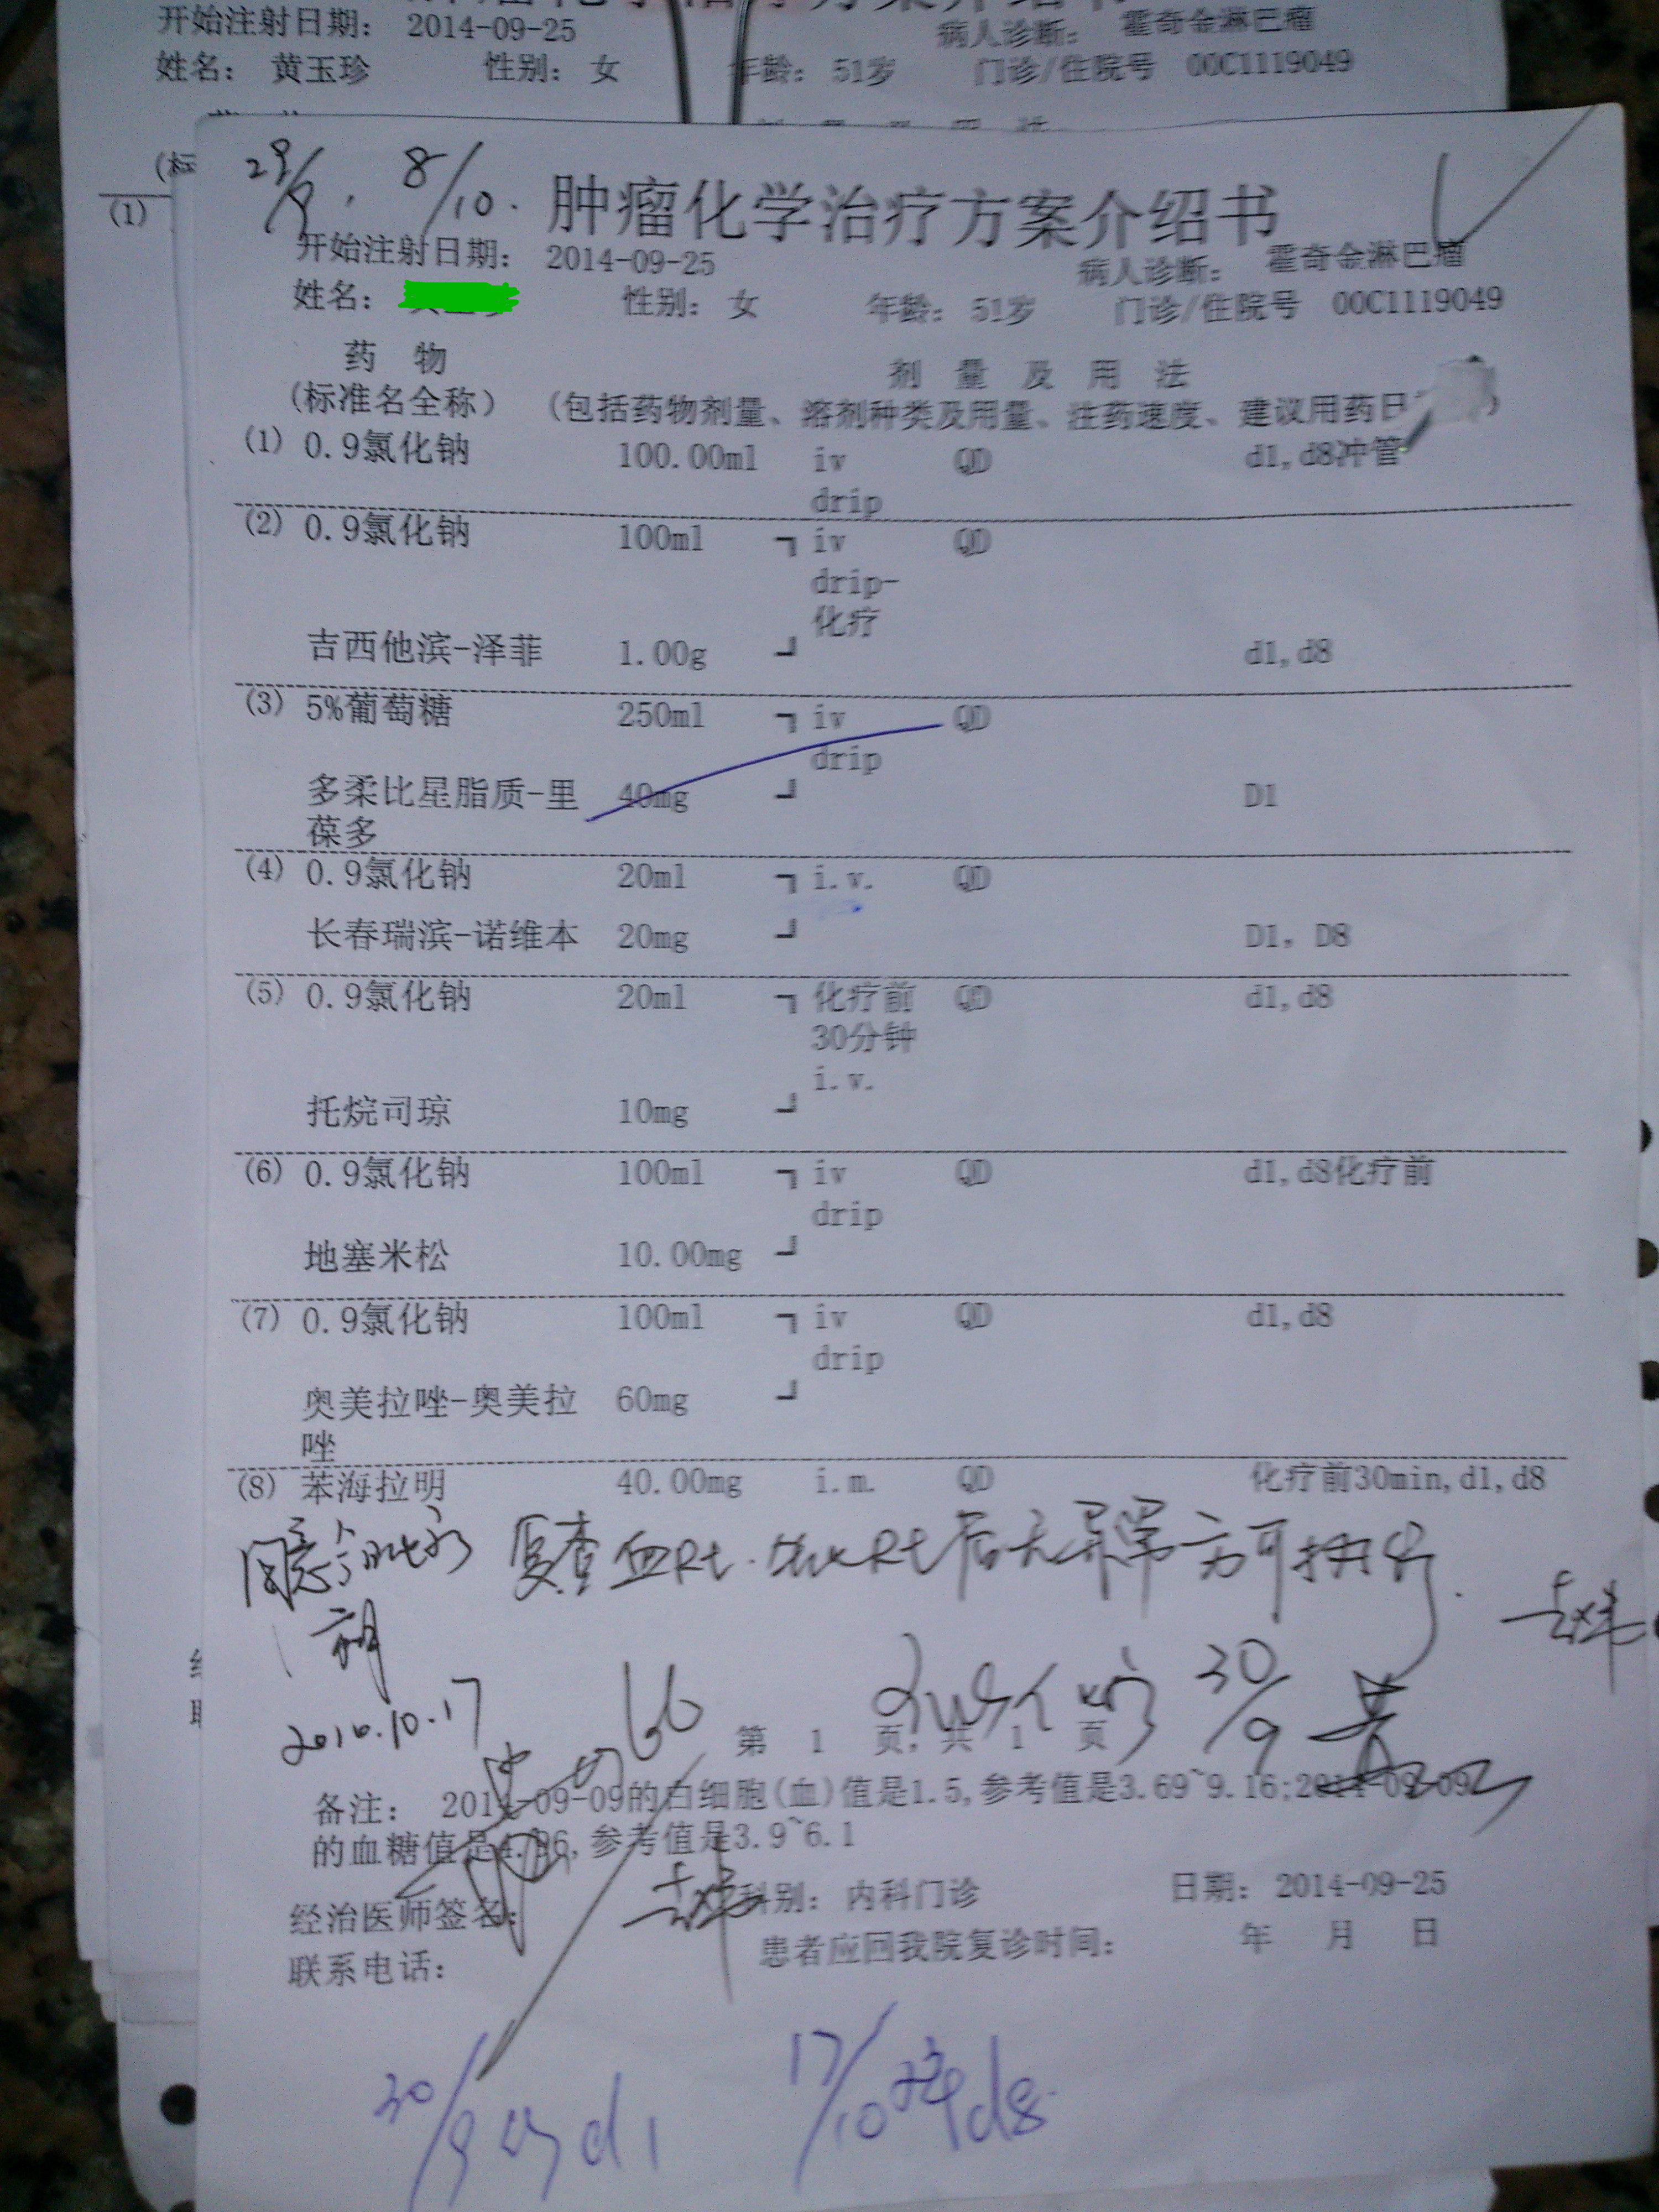 开始注射日期： 2014-09-25 病人诊断： 霍奇金淋巴瘤
姓名： 黄玉珍 性别： 女 年龄： 51岁 门诊/住院号 00C1119049
(标
(1)
29/9， 8/10.
肿瘤化学治疗方案介绍书
开始注射日期： 2014-09-25 病人诊断： 霍奇金淋巴瘤
姓名： 性别： 女 年龄： 51岁 门诊/住院号 00C1119049
药 物 剂 量 及 用 法
(标准名全称) (包括药物剂量、溶剂种类及用量、注药速度、建议用药日
(1) 0.9氯化钠 100.00ml iv QD d1,d8冲管
drip
(2) 0.9氯化钠 100ml ┐ iv QD
drip-
化疗
吉西他滨-泽菲 1.00g ┘ d1,d8
(3) 5%葡萄糖 250ml ┐ iv QD
drip
多柔比星脂质-里 40mg ┘ D1
葆多
(4) 0.9氯化钠 20ml ┐ i.v. QD
长春瑞滨-诺维本 20mg ┘ D1, D8
(5) 0.9氯化钠 20ml ┐ 化疗前 QD d1,d8
30分钟
i.v.
托烷司琼 10mg ┘
(6) 0.9氯化钠 100ml ┐ iv QD d1,d8化疗前
drip
地塞米松 10.00mg ┘
(7) 0.9氯化钠 100ml ┐ iv QD d1,d8
drip
奥美拉唑-奥美拉 60mg ┘
唑
(8) 苯海拉明 40.00mg i.m. QD 化疗前30min,d1,d8
复查血Rt. 后无异常方可执行.
30/9
第 1 页，共 1 页
备注： 2014-09-09的白细胞(血)值是1.5,参考值是3.69~9.16;2014-09-09
的血糖值是4.96,参考值是3.9~6.1
经治医师签名： 科别： 内科门诊 日期： 2014-09-25
联系电话： 患者应回我院复诊时间： 年 月 日
30/9 d1 17/10 d8